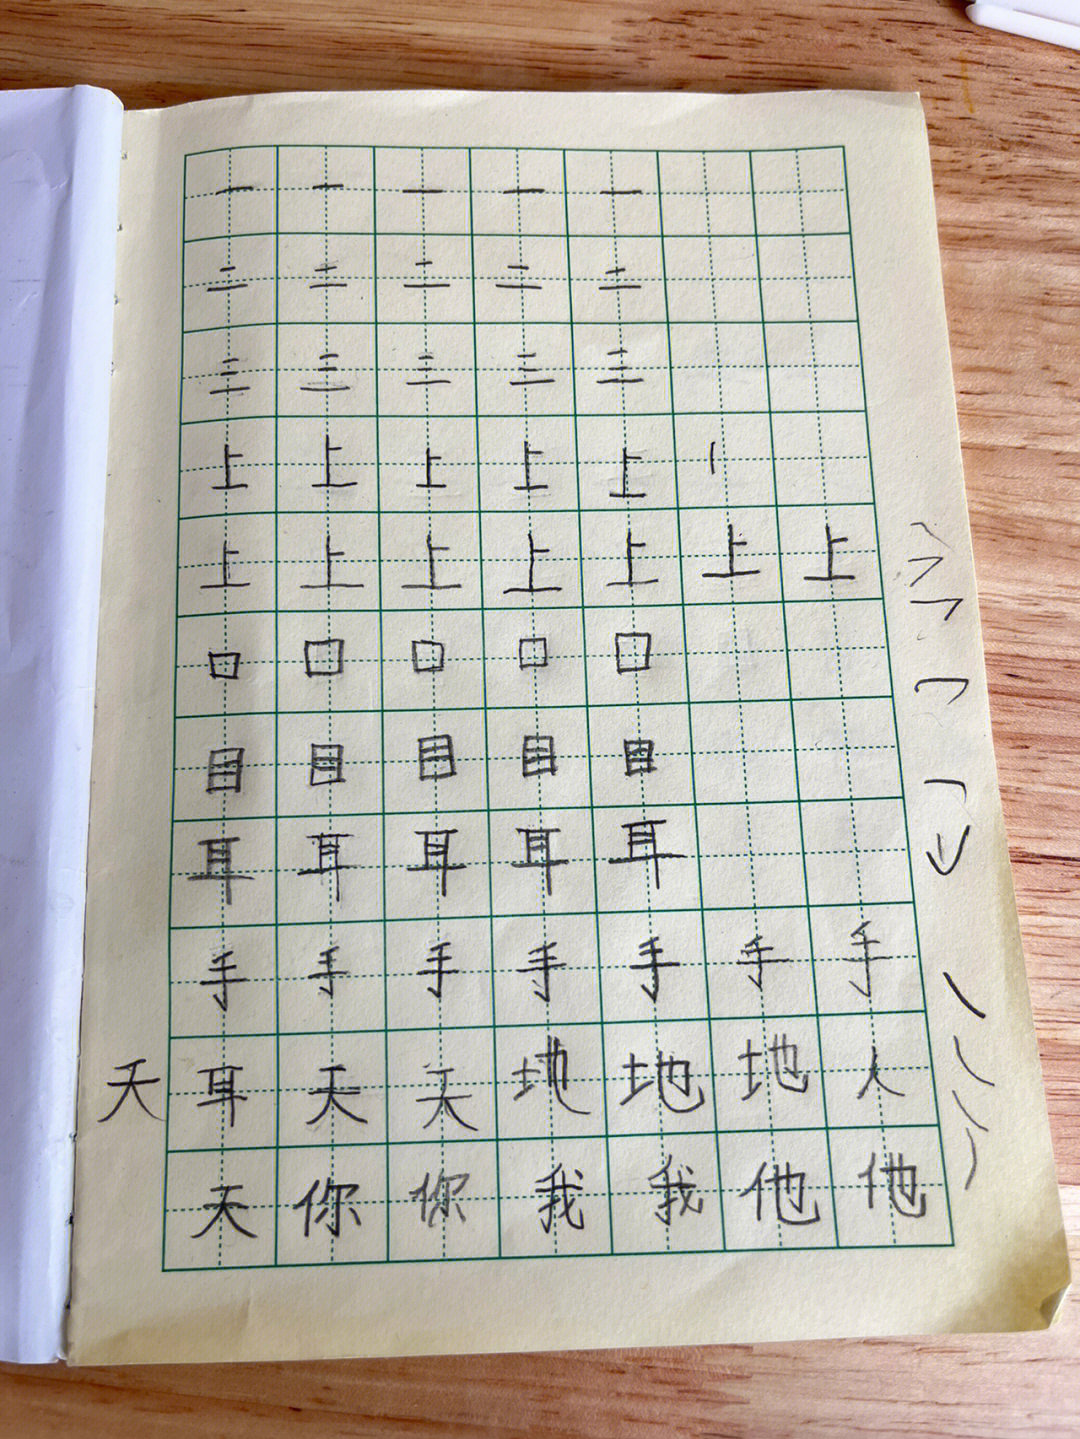 一 一 一 一 一
二 二 二 二 二
三 三 三 三 三
上 上 上 上 上 丨
上 上 上 上 上 上 上
口 口 口 口 口
目 目 目 目 目
耳 耳 耳 耳 耳
手 手 手 手 手 手 手
天 耳 天 天 地 地 地 人
天 你 你 我 我 他 他